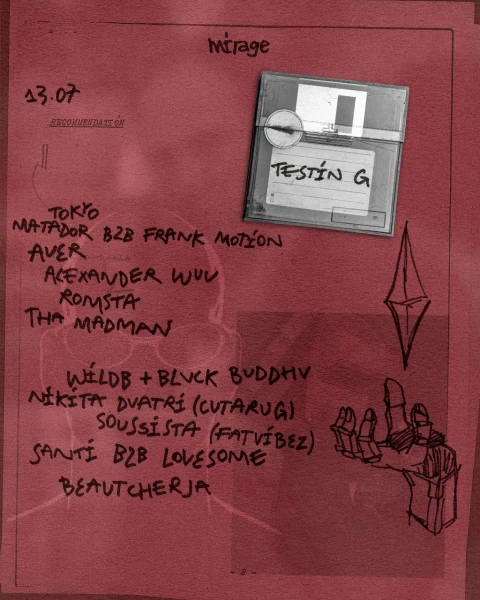 mirage
13.07
RECOMMENDATION
TESTING
TOKYO
MATADOR B2B FRANK MOTION
AVER
ALEXANDER WUU
ROMSTA
THA MADMAN
WILDB + BLVCK BUDDHV
NIKITA DVATRI (CUTARUG)
SOUSSISTA (FATVIBEZ)
SANTI B2B LOVESOME
BEAUTCHERJA
- 2 -